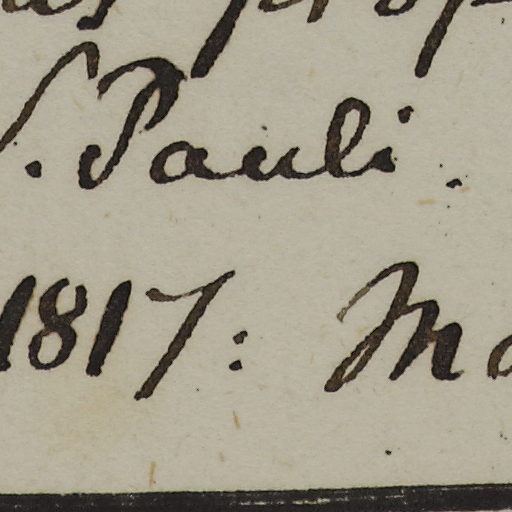 S. Pauli.
1817: Ma